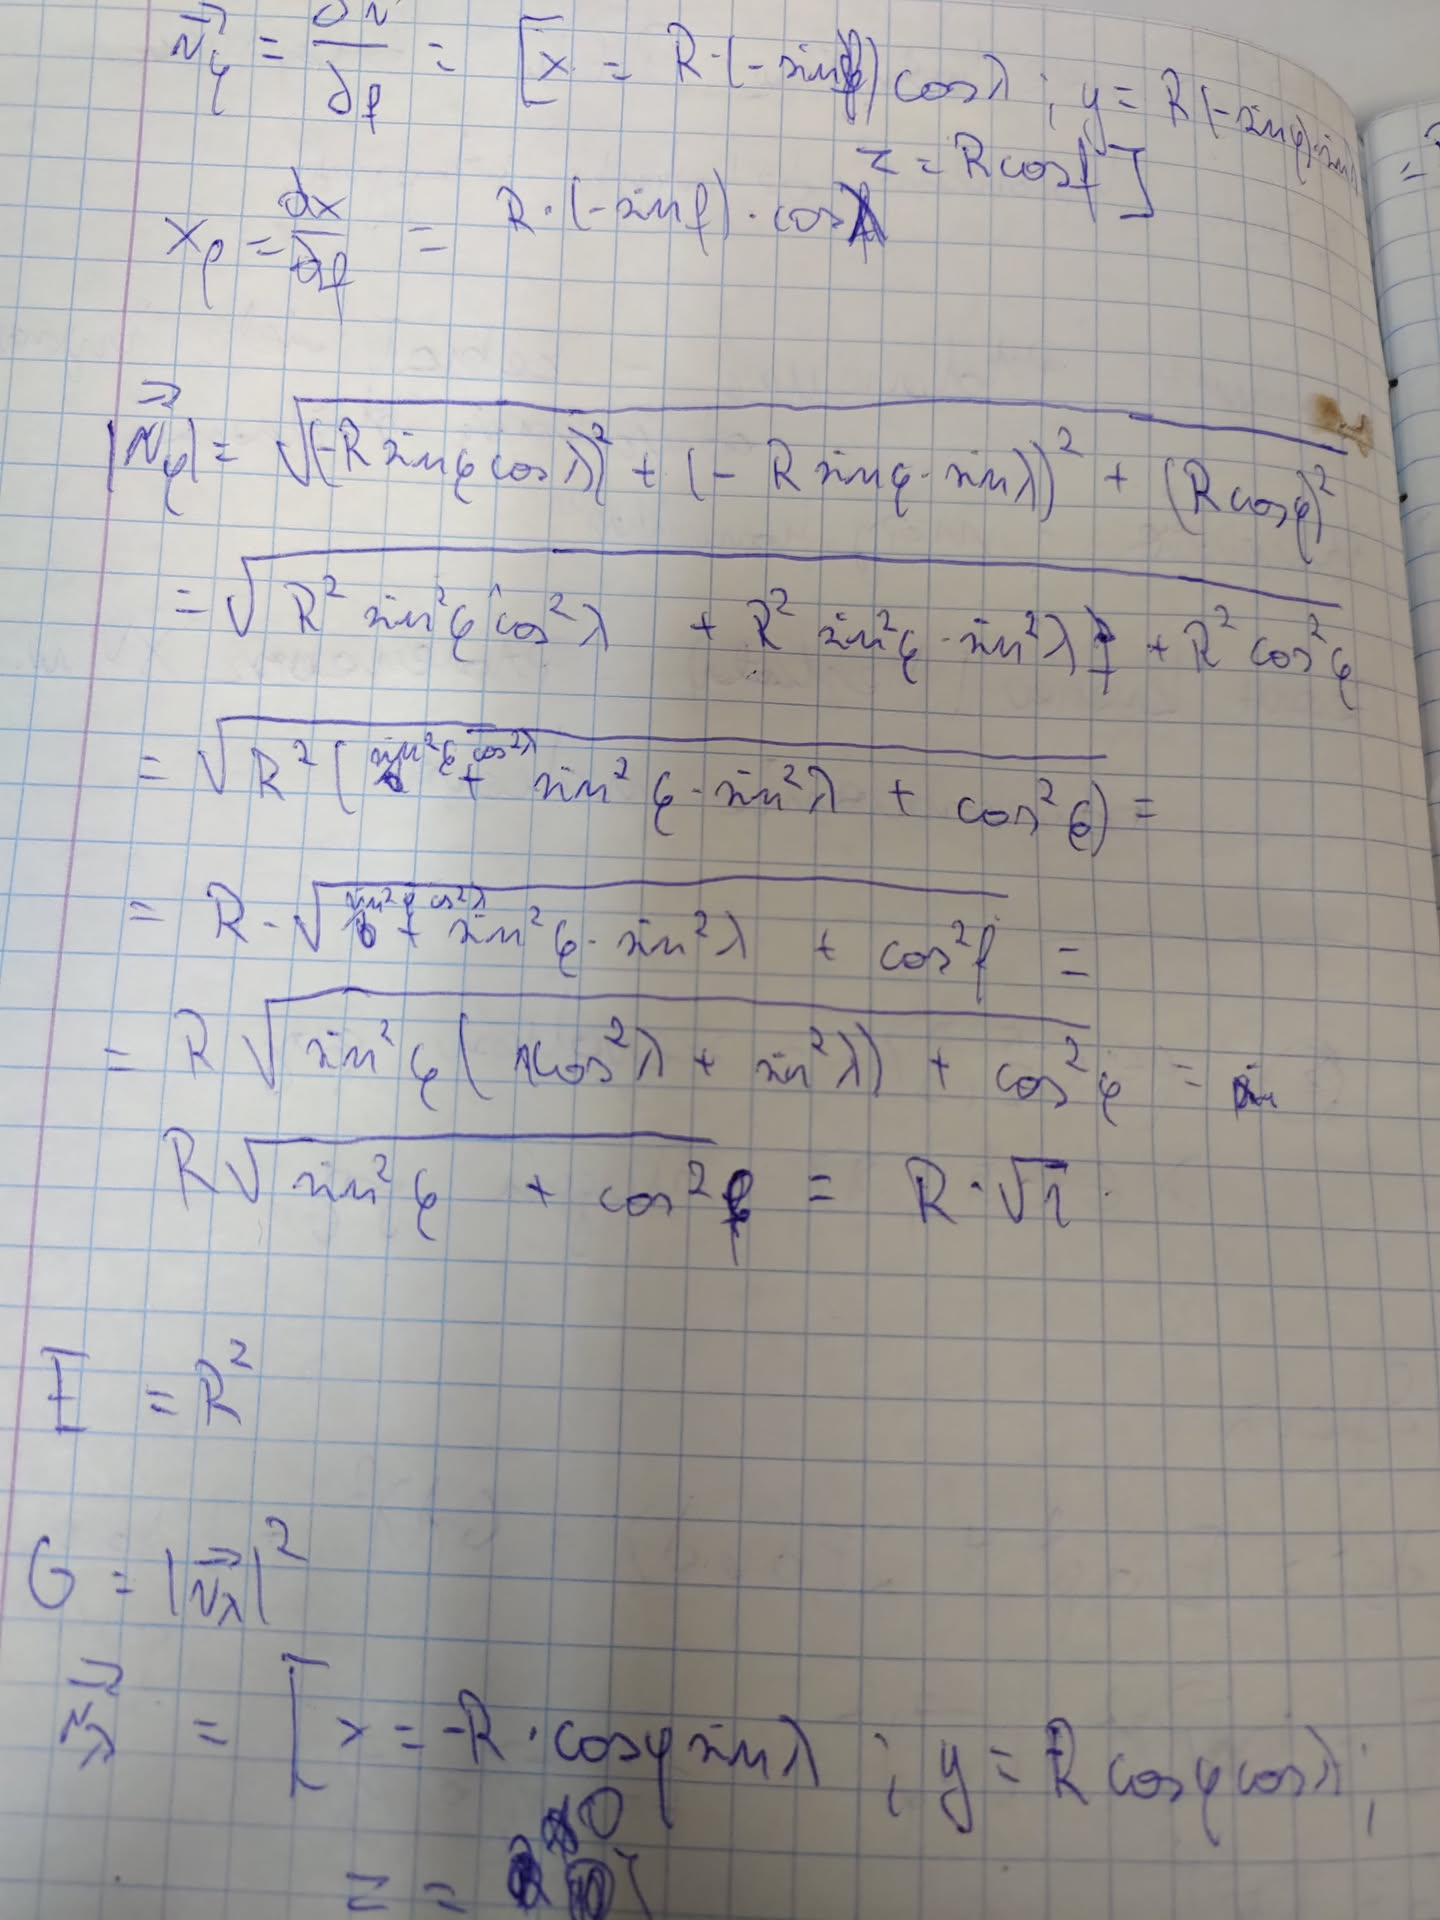 r⃗φ = ∂r/∂φ = [x = R·(-sinφ) cosλ ; y = R(-sinφ)·sinλ
z = R cosφ]
xφ = dx/dφ = R·(-sinφ)·cosλ
|r⃗φ| = √((-R sinφ cosλ)² + (-R sinφ·sinλ)² + (R cosφ)²
= √(R² sin²φ cos²λ + R² sin²φ·sin²λ + R² cos²φ
= √(R² (sin²φ cos²λ + sin²φ·sin²λ + cos²φ) =
= R·√(sin²φ cos²λ + sin²φ·sin²λ + cos²φ =
= R √(sin²φ (cos²λ + sin²λ) + cos²φ =
R √(sin²φ + cos²φ = R·√1.
E = R²
G = |r⃗λ|²
r⃗λ = [x = -R·cosφ sinλ ; y = R cosφ cosλ ;
z = 0]